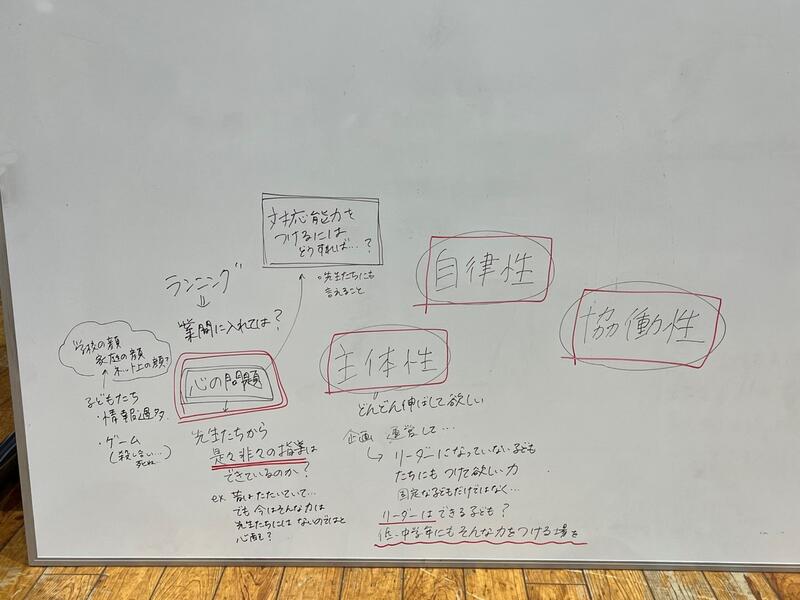 対応能力を
つけるには
どうすれば…?
・先生たちにも
言えること
ランニング
⇓
業間に入れては?
学校の顔
家庭の顔
ネット上の顔?
↑
子どもたち
・情報過多
・ゲーム
(殺し合い…
死ね
心の問題
先生たちから
是々非々の指導は
できているのか?
ex 昔はたたいていて…
でも今はそんな力は
先生たちにはないのではと
心配?
主体性
どんどん伸ばして欲しい
企画 運営して…
リーダーになっていない子ども
たちにもつけて欲しい力
固定な子どもだけではなく…
リーダーはできる子ども?
低・中学年にもそんな力をつける場を
自律性
協働性